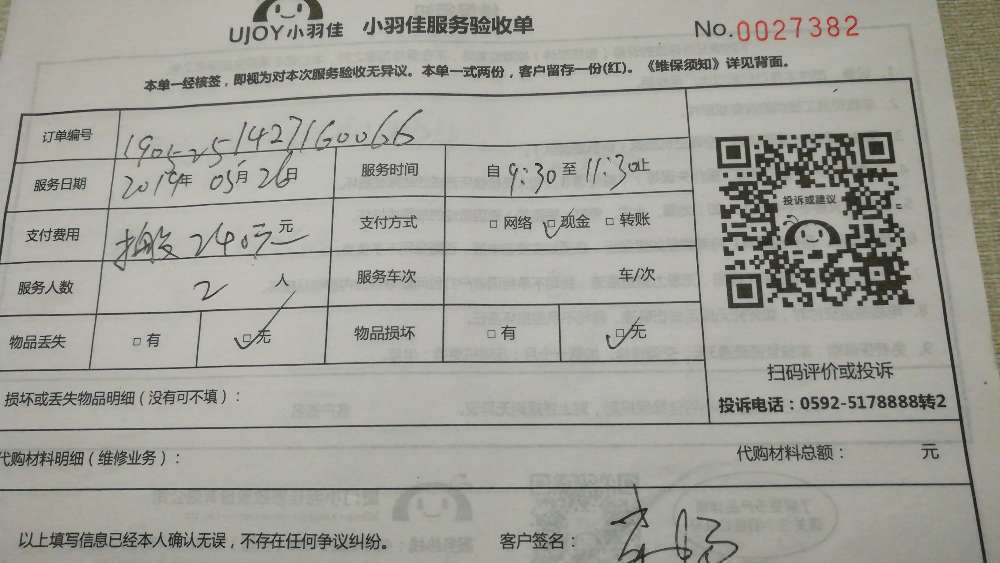 UJOY小羽佳 小羽佳服务验收单 No.0027382
本单一经核签，即视为对本次服务验收无异议。本单一式两份，客户留存一份(红)。《维保须知》详见背面。
订单编号 1905251427160066
服务日期 2019年 05月 26日 服务时间 自 9:30 至 11:30止
支付费用 240元 元 支付方式 □ 网络 □ 现金 □ 转账
投诉或建议
服务人数 2 人 服务车次 车/次
物品丢失 □ 有 □ 无 物品损坏 □ 有 □ 无
扫码评价或投诉
损坏或丢失物品明细（没有可不填）：
投诉电话：0592-5178888转2
代购材料明细（维修业务）： 代购材料总额： 元
以上填写信息已经本人确认无误，不存在任何争议纠纷。 客户签名：